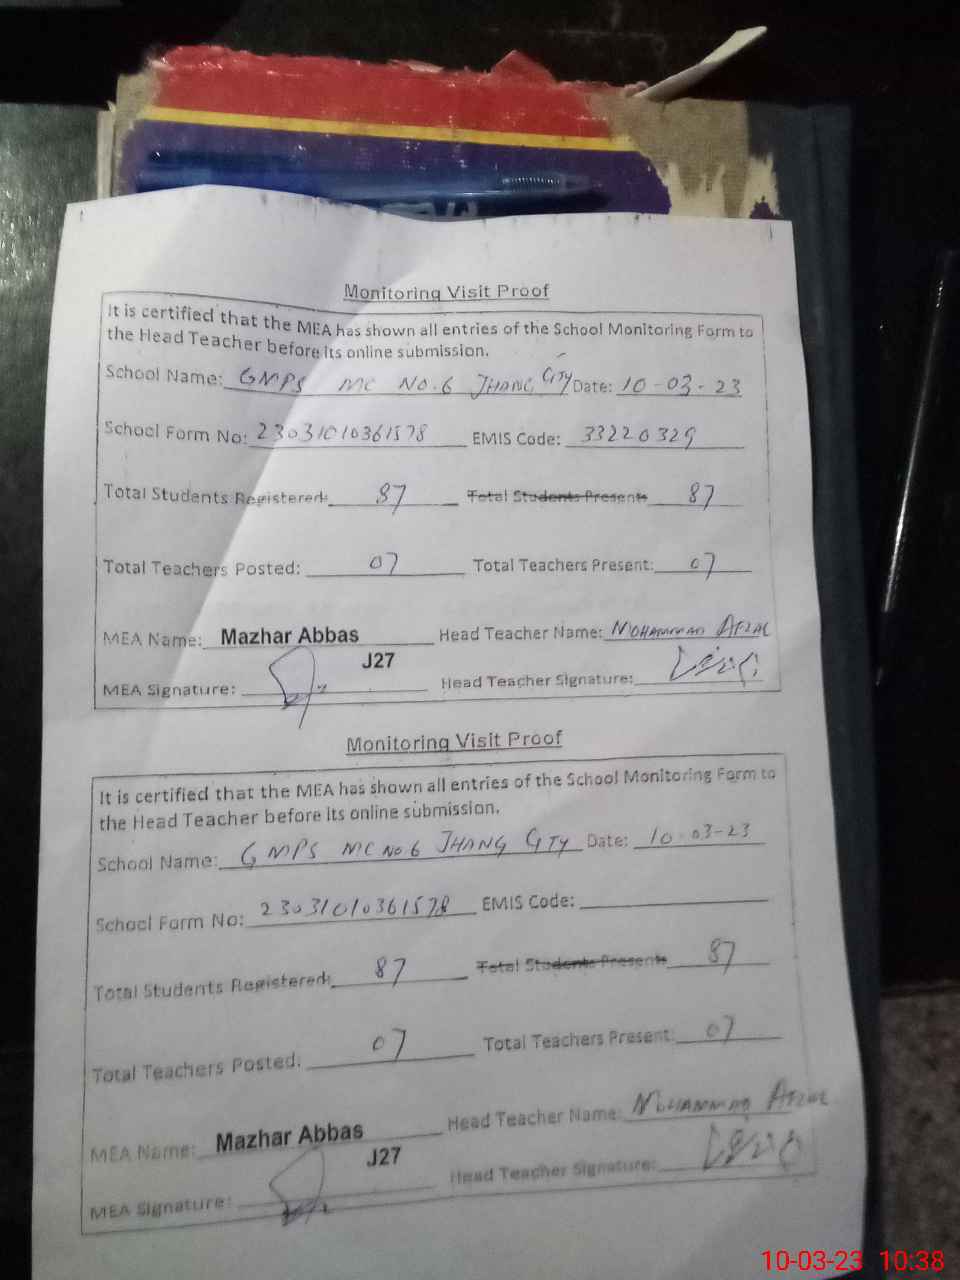 Monitoring Visit Proof
It is certified that the MEA has shown all entries of the School Monitoring Form to
the Head Teacher before its online submission.
School Name: GMPS MC NO.6 JHANG CITY Date: 10-03-23
School Form No: 23031010361578 EMIS Code: 33220329
Total Students Registered: 87 Total Students Present: 87
Total Teachers Posted: 07 Total Teachers Present: 07
MEA Name: Mazhar Abbas Head Teacher Name: MOHAMMAD AFZAL
J27
MEA Signature: Head Teacher Signature:
Monitoring Visit Proof
It is certified that the MEA has shown all entries of the School Monitoring Form to
the Head Teacher before its online submission.
School Name: GMPS MC NO 6 JHANG CITY Date: 10-03-23
School Form No: 23031010361578 EMIS Code:
Total Students Registered: 87 Total Students Present: 87
Total Teachers Posted: 07 Total Teachers Present: 07
MEA Name: Mazhar Abbas Head Teacher Name: MOHAMMAD AFZAL
J27
MEA Signature: Head Teacher Signature:
10-03-23 10:38